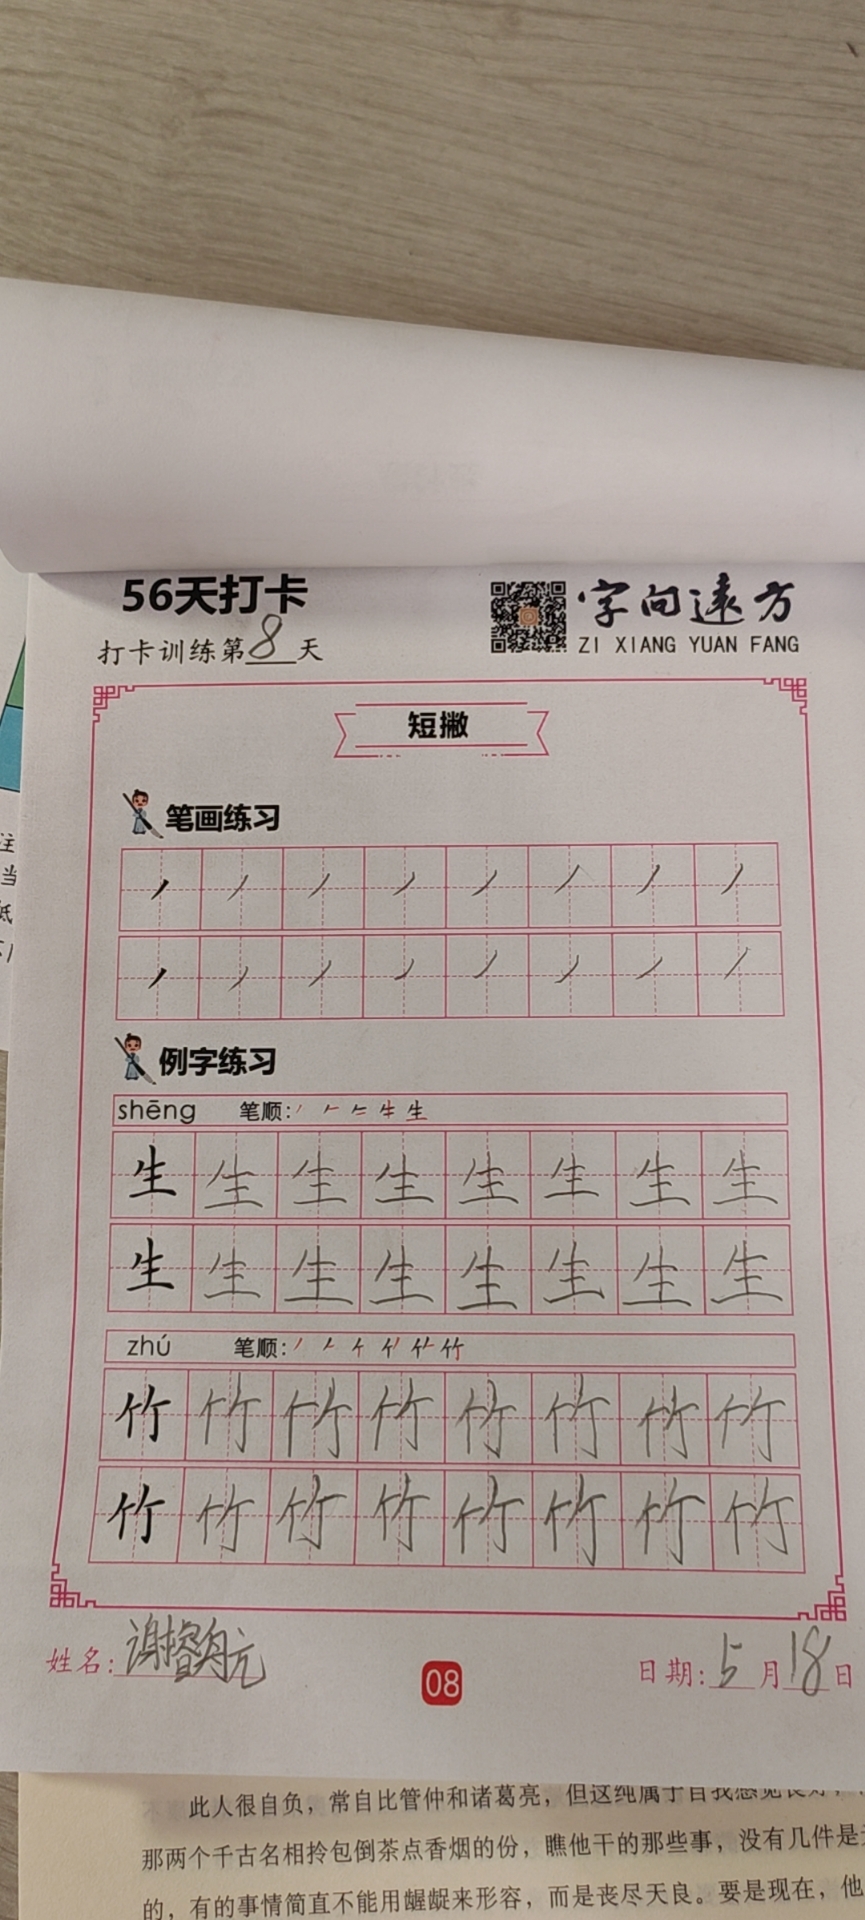 56天打卡
字向远方
打卡训练第8天
ZI XIANG YUAN FANG
短撇
笔画练习
例字练习
shēng 笔顺:
生 生 生 生 生 生 生 生
生 生 生 生 生 生 生 生
zhú 笔顺:
竹 竹 竹 竹 竹 竹 竹 竹
竹 竹 竹 竹 竹 竹 竹 竹
姓名:谢睿航
08
日期:5月18日
注
当
纸
此人很自负，常自比管仲和诸葛亮，但这纯属于自我感觉良好，
那两个千古名相拎包倒茶点香烟的份，瞧他干的那些事，没有几件是
的，有的事情简直不能用龌龊来形容，而是丧尽天良。要是现在，他